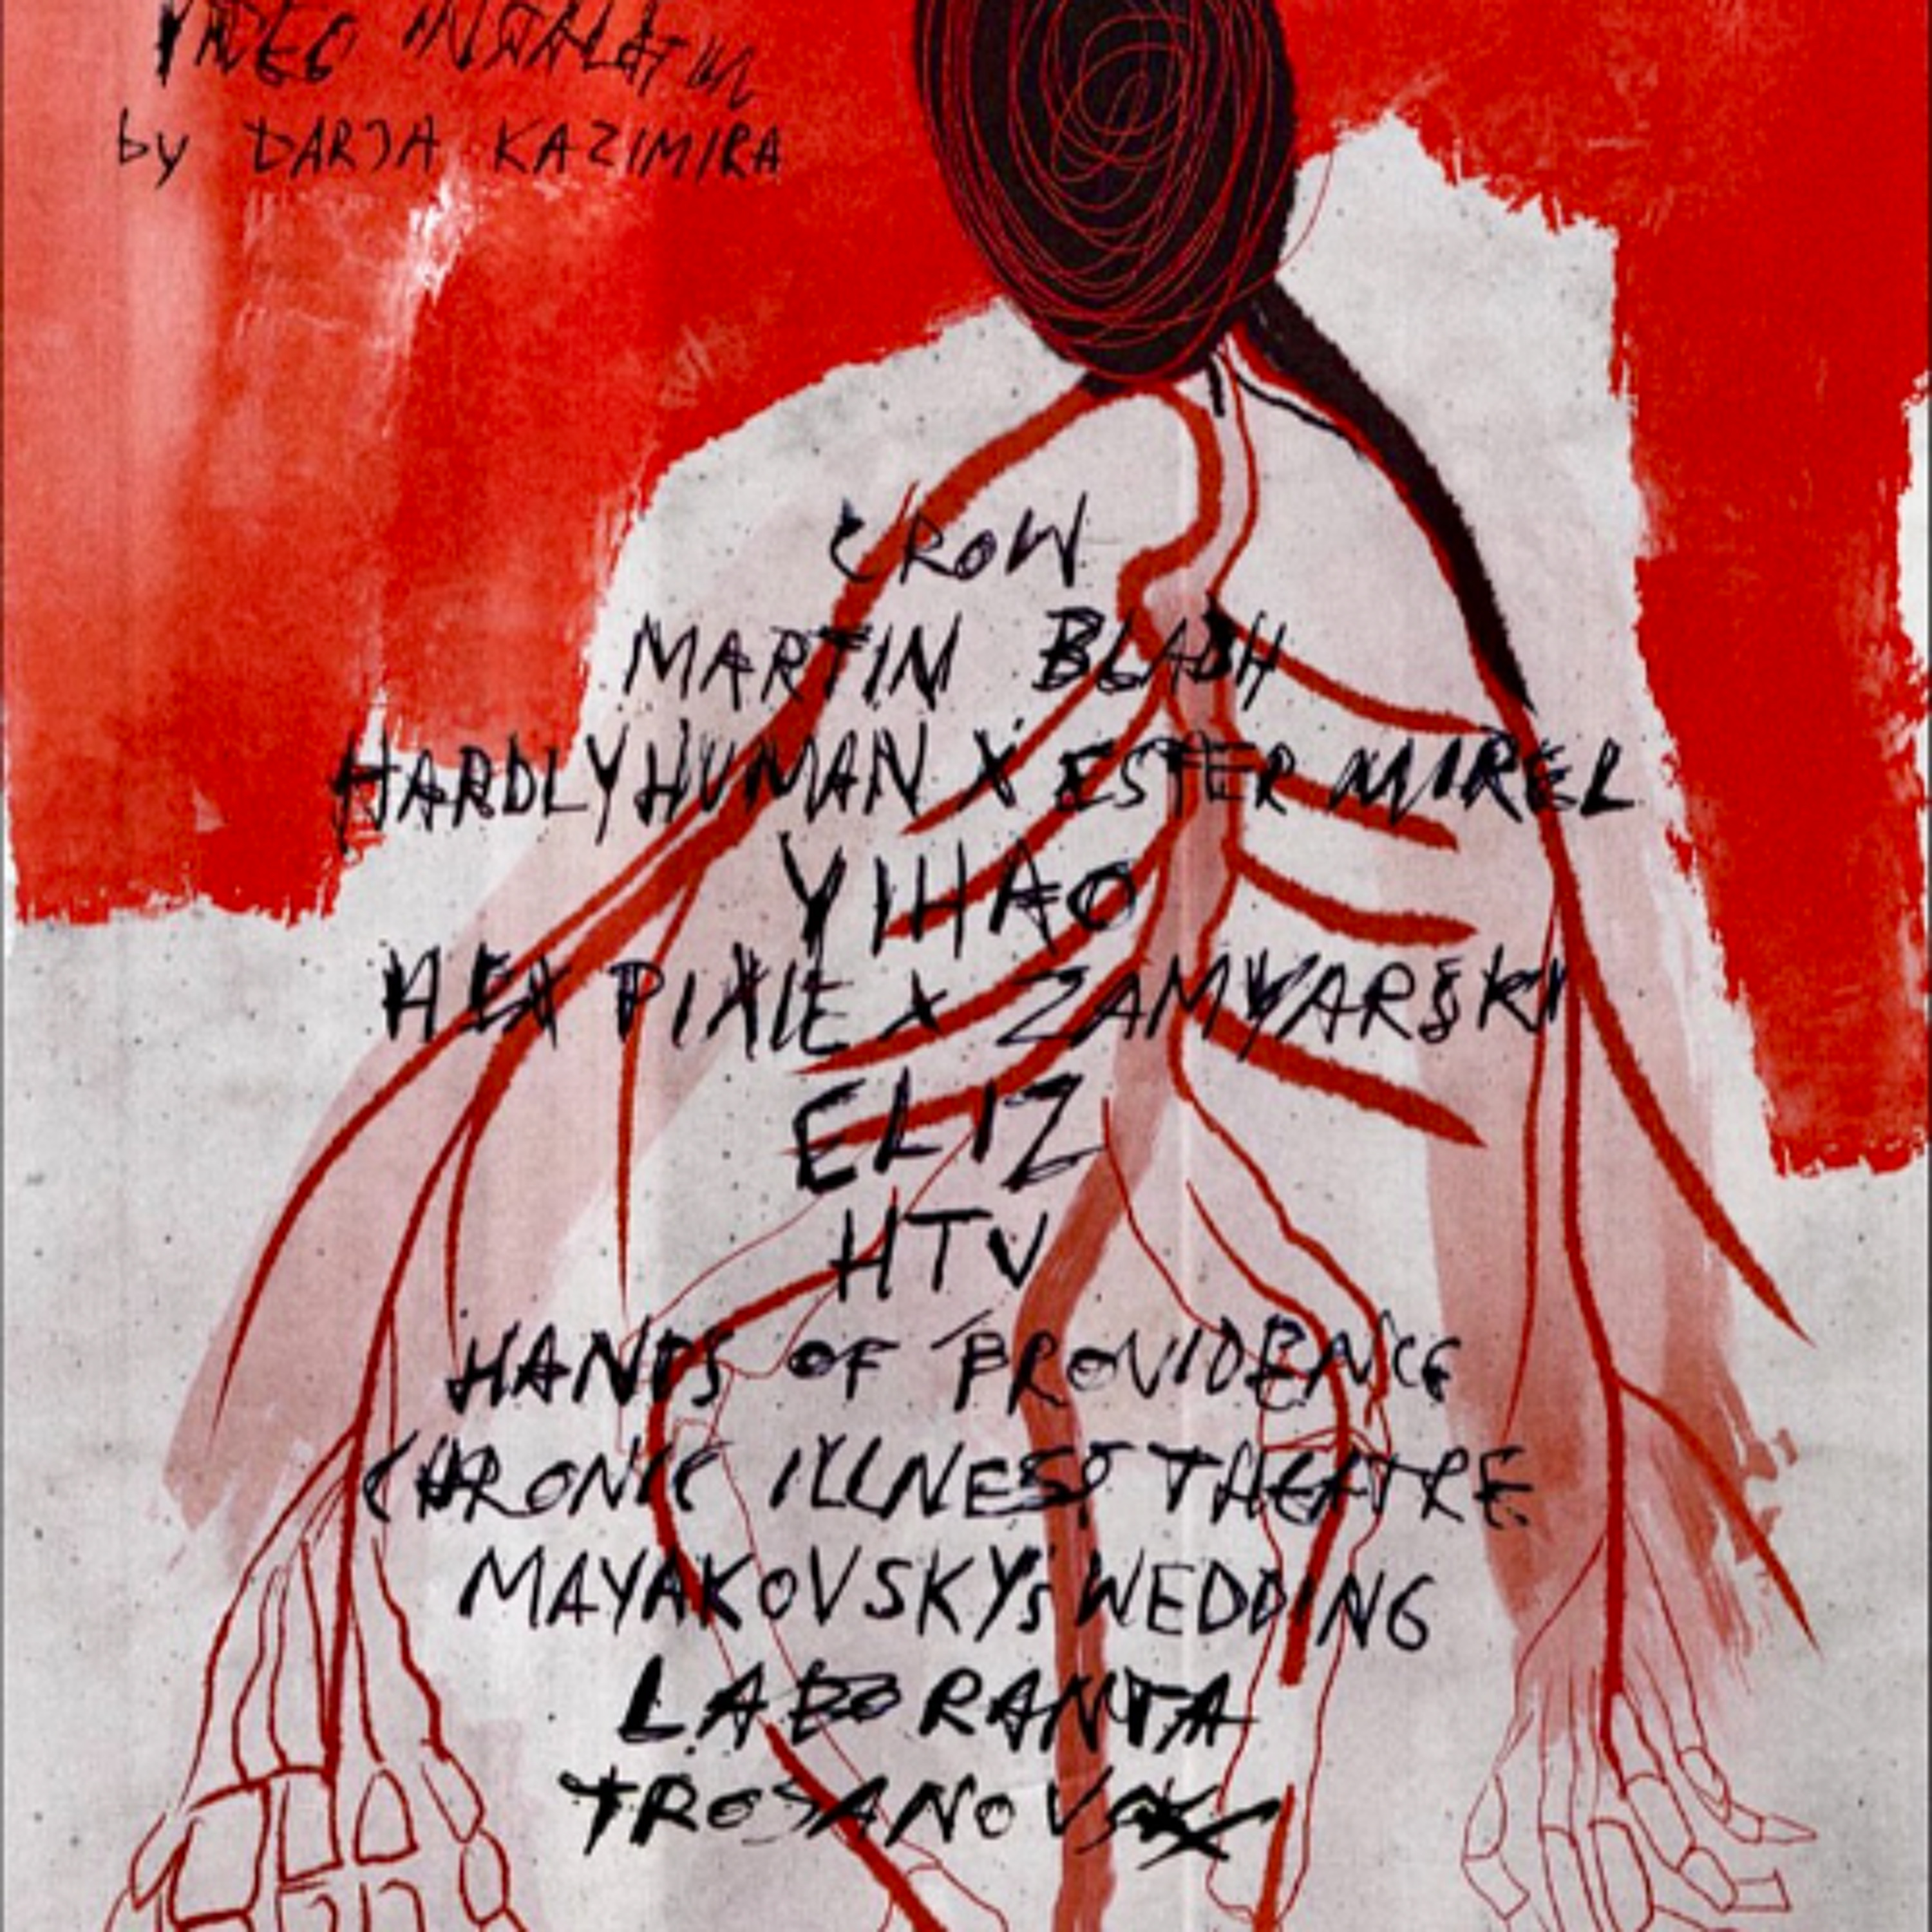 VIDEO INSTALATION
by DARJA KAZIMIRA
CROW
MARTIN BLADH
HARDLY HUMAN X ESTER MIREL
YIHAO
HEX PIXIE X ZAMYARSKI
ELIZ
HTV
HANDS OF PROVIDENCE
CHRONIC ILLNESS THEATRE
MAYAKOVSKY'S WEDDING
LABORANTA